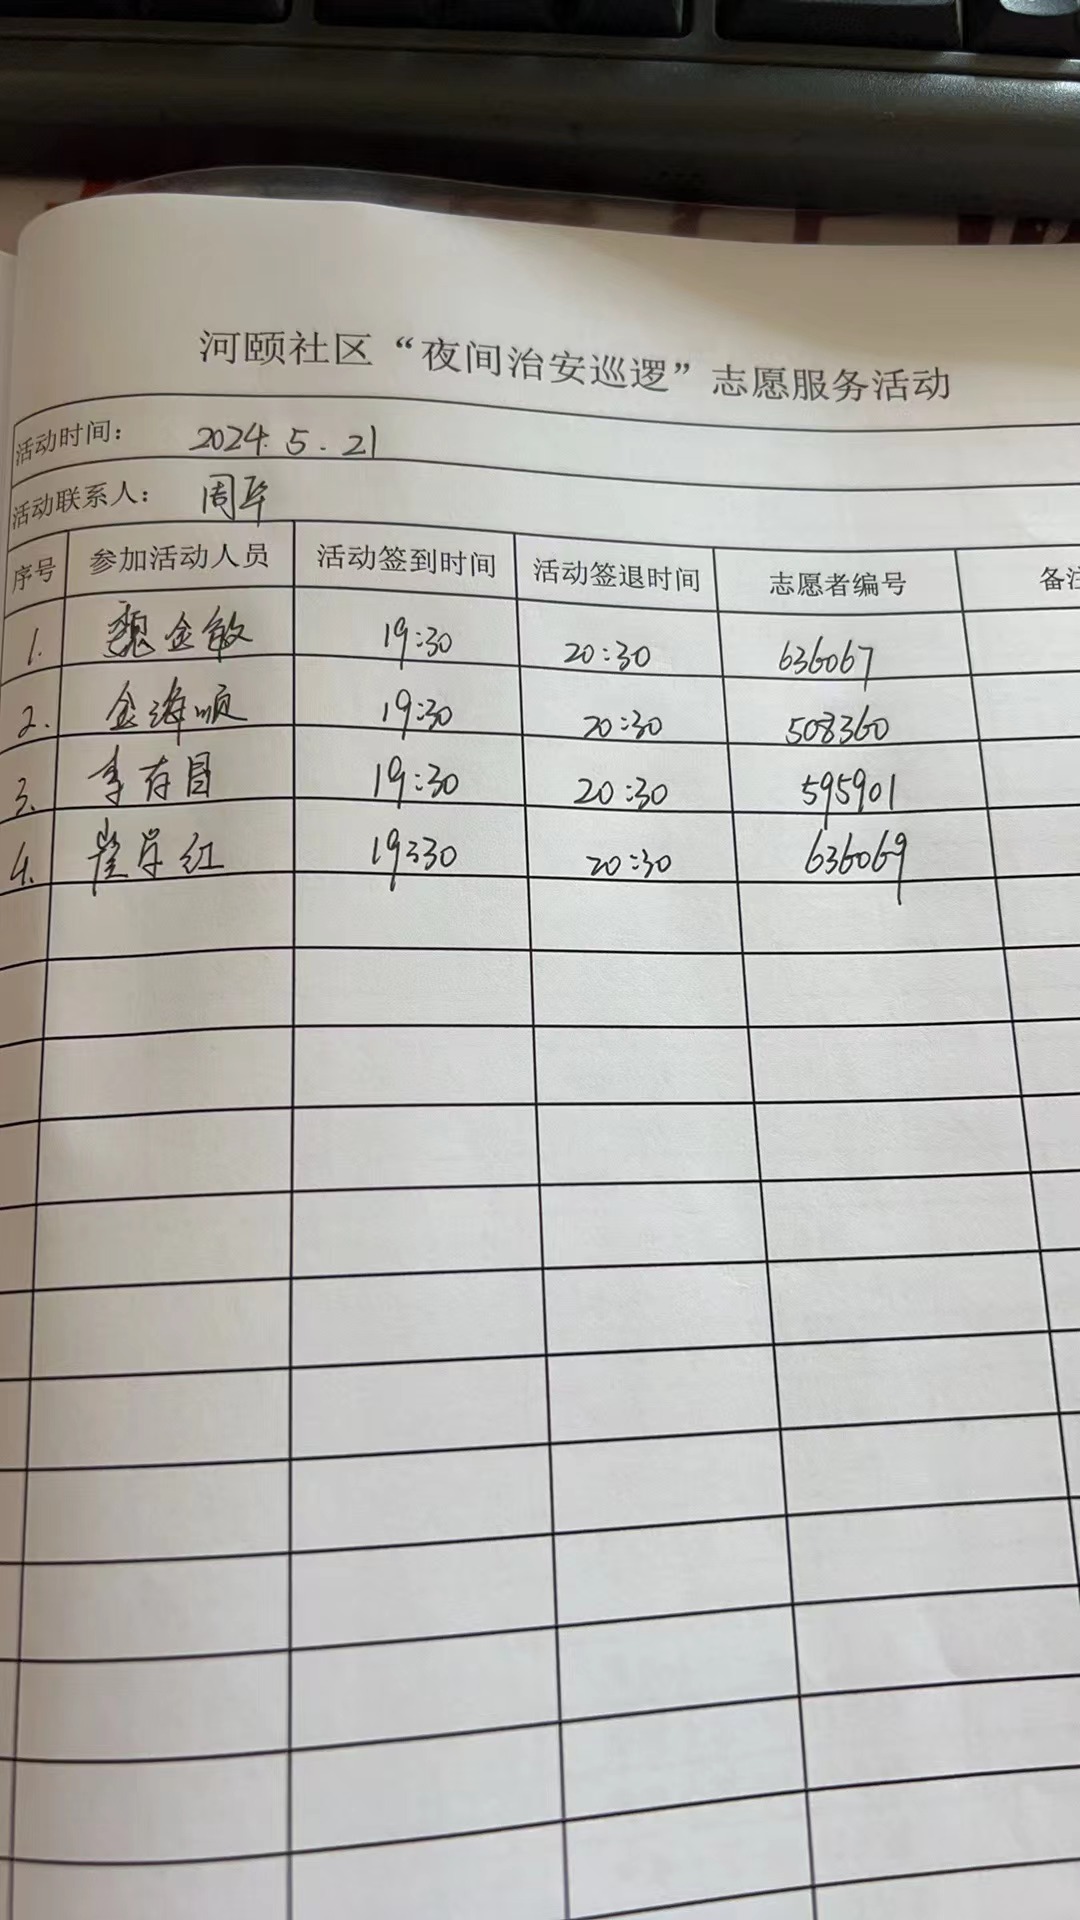 河颐社区“夜间治安巡逻”志愿服务活动
活动时间： 2024.5.21
活动联系人： 周华
序号 参加活动人员 活动签到时间 活动签退时间 志愿者编号 备注
1. 魏金敏 19:30 20:30 636067
2. 金海顺 19:30 20:30 508360
3. 李存昌 19:30 20:30 595901
4. 红 19:30 20:30 636069